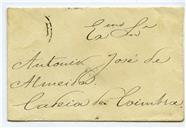 Exmo Sr
Antonio José de
Almeida
Cadeia de Coimbra